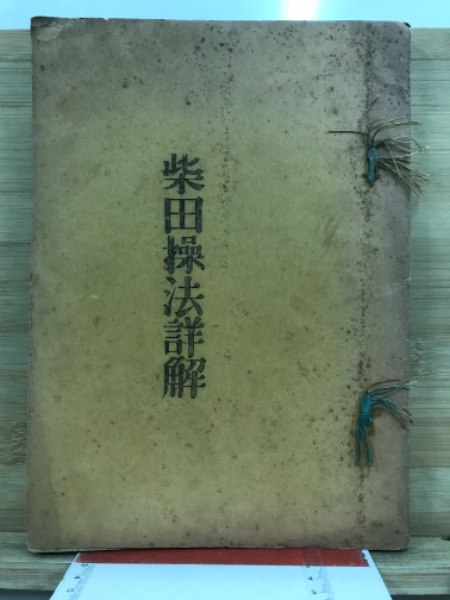 柴田操法詳解